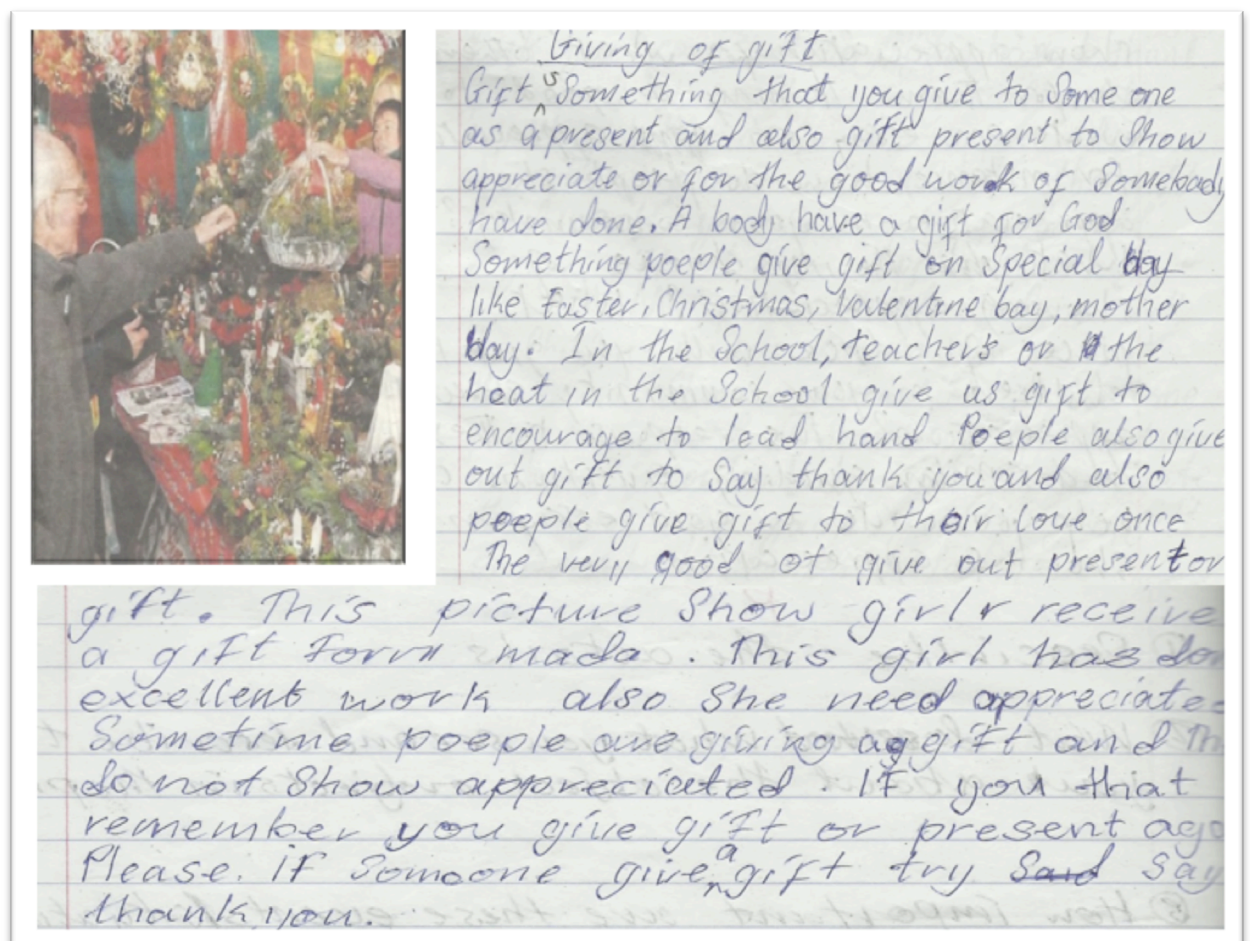 Giving of gift
Gift s Something that you give to Some one
as a present and also gift present to Show
appreciate or for the good work of Somebady
have done. A body have a gift for God
Something poeple give gift on Special day
like Easter, Christmas, Valentine bay, mother
day. In the School, teachers or the
heat in the School give us gift to
encourage to lead hand Poeple also give
out gift to Say thank you and also
poeple give gift to their love once
The very good ot give out present or
gift. This picture Show girl receive
a gift form mada. This girl has
excellent work also She need appreciate
Sometime poeple are giving ag gift and
do not Show appreciated. If you that
remember you give gift or present ago
Please. if Someone give a gift try Said Say
thank you.